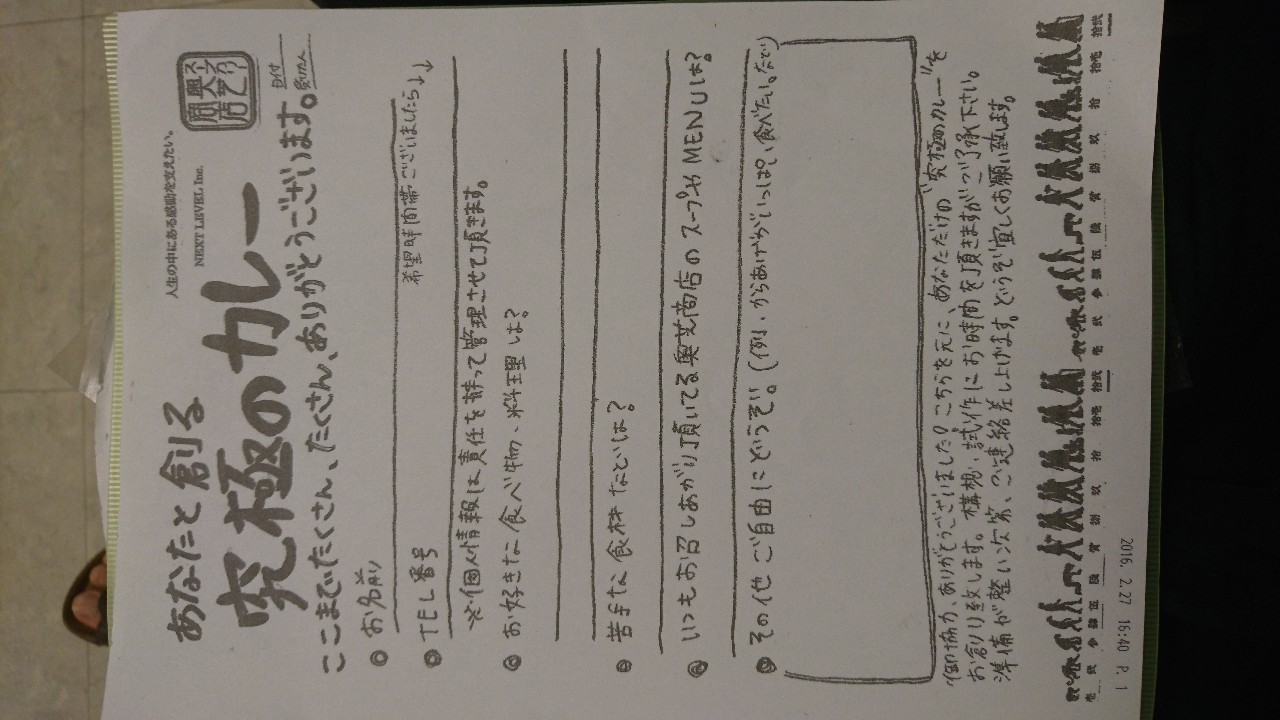 人生の中にある感動を支えたい。
NEXT LEVEL Inc.
スープカレー
奥芝商店
あなたと創る
究極のカレー
日付
受付人
ここまでたくさん、たくさん、たくさん、ありがとうございます。
お名前
TEL番号
希望時間帯ございましたら↓↓
※個人情報は責任を持って管理させて頂きます。
お好きな食べ物・料理は?
苦手な食材などは?
いつもお召しあがり頂いてる奥芝商店のスープやMENUは?
その他ご自由にどうぞ。(例)・からあげがいっぱい食べたい。など)
御協力、ありがとうございました。こちらを元に、あなただけの"究極のカレー"を
お創り致します。構想・試作にお時間を頂きますがご了承下さい。
準備が整い次第、ご連絡差し上げます。どうぞ宜しくお願い致します。
壱 弐 参 肆 伍 陸 質 捌 玖 拾 拾壱 拾弐 壱 弐 参 肆 伍 陸 質 捌 玖 拾 拾壱 拾弐
2016. 2.27 16:40 P. 1